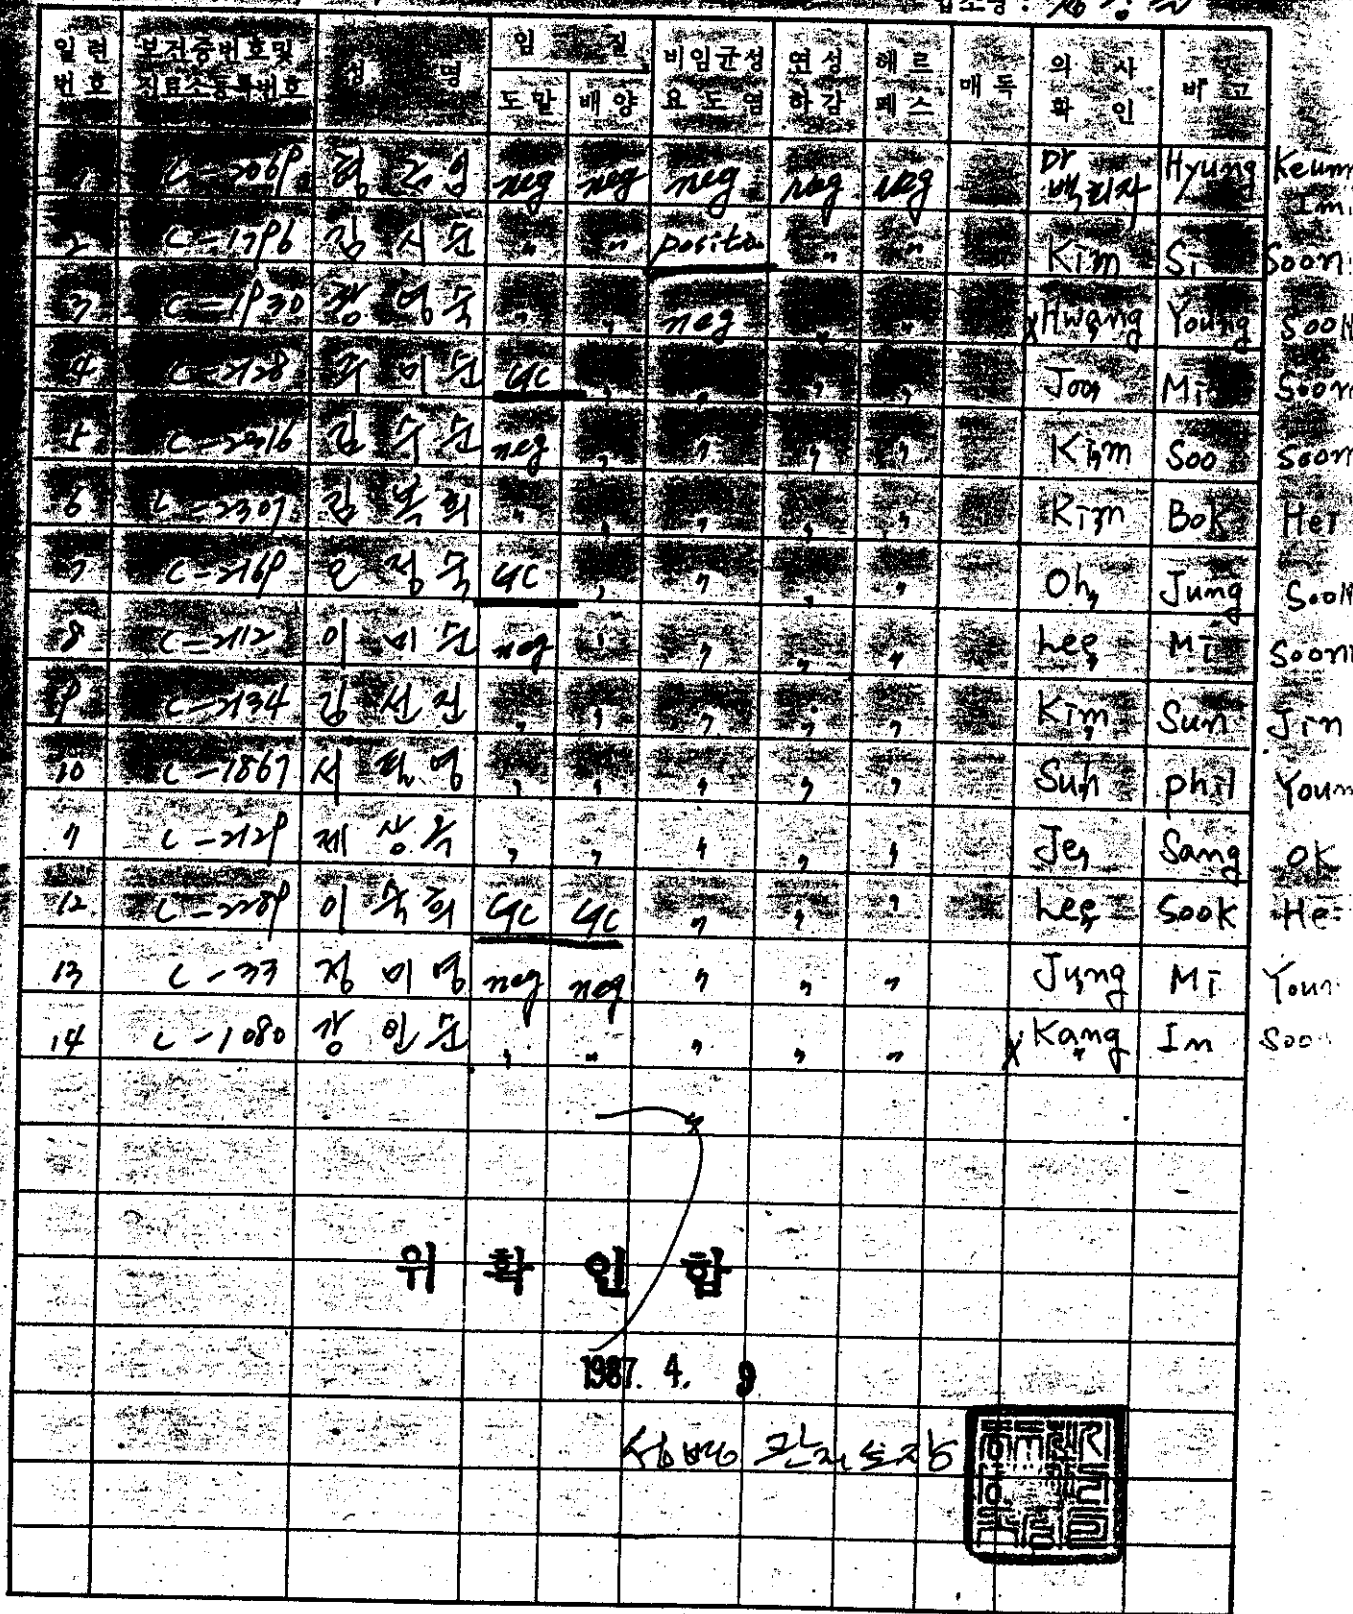 업소명 :
일련번호 보건증번호및진료소등록번호 성명 임질 도말 배양 비임균성요도염 연성하감 헤르페스 매독 의사확인 비고
1 C-2069 형금임 neg neg neg neg neg Dr 백리자 Hyung Keum Im
2 C-1796 김시순 〃 〃 positive 〃 〃 Kim Si Soon
3 C-1930 황영숙 〃 〃 neg 〃 〃 x Hwang Young Sook
4 C-2128 주미순 UC 〃 〃 〃 〃 Joo Mi Soon
5 C-2016 김수순 neg 〃 〃 〃 〃 Kim Soo Soon
6 C-2307 김복희 〃 〃 〃 〃 〃 Kim Bok Hei
7 C-2169 오정숙 UC 〃 〃 〃 〃 Oh Jung Sook
8 C-2112 이미순 neg 〃 〃 〃 〃 Lee Mi Soon
9 C-2134 김선진 〃 〃 〃 〃 〃 Kim Sun Jin
10 C-1867 서필영 〃 〃 〃 〃 〃 Suh phil Youn
11 C-2129 제상옥 〃 〃 〃 〃 〃 Je Sang OK
12 C-2289 이숙희 UC UC 〃 〃 〃 Lee Sook He
13 C-33 정미영 neg neg 〃 〃 〃 Jung Mi Youn
14 C-1080 강인순 〃 〃 〃 〃 〃 x Kang In Soo
위 확인함
1987. 4. 9
성병관리소장